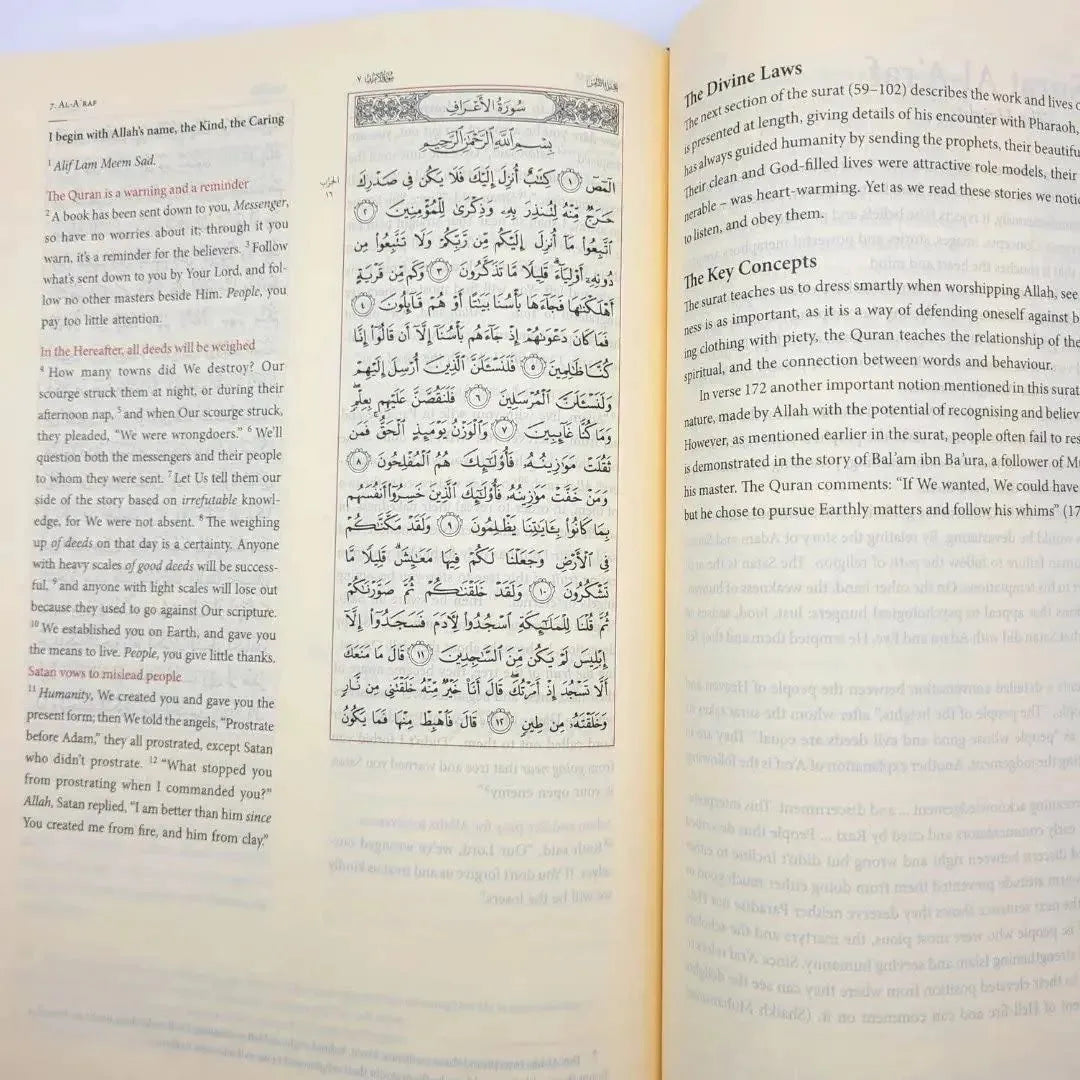 7. AL-A'RAF
I begin with Allah's name, the Kind, the Caring
1 Alif Lam Meem Sad.
The Quran is a warning and a reminder
2 A book has been sent down to you, Messenger,
so have no worries about it; through it you
warn, it's a reminder for the believers. 3 Follow
what's sent down to you by Your Lord, and fol-
low no other masters beside Him. People, you
pay too little attention.
In the Hereafter, all deeds will be weighed
4 How many towns did We destroy? Our
scourge struck them at night, or during their
afternoon nap, 5 and when Our scourge struck,
they pleaded, "We were wrongdoers." 6 We'll
question both the messengers and their people
to whom they were sent. 7 Let Us tell them our
side of the story based on irrefutable knowl-
edge, for We were not absent. 8 The weighing
up of deeds on that day is a certainty. Anyone
with heavy scales of good deeds will be success-
ful, 9 and anyone with light scales will lose out
because they used to go against Our scripture.
10 We established you on Earth, and gave you
the means to live. People, you give little thanks.
Satan vows to mislead people
11 Humanity, We created you and gave you the
present form; then We told the angels, "Prostrate
before Adam," they all prostrated, except Satan
who didn't prostrate. 12 "What stopped you
from prostrating when I commanded you?"
Allah, Satan replied, "I am better than him since
You created me from fire, and him from clay."
سُورَةُ الأَعْرَافِ
بِسْمِ اللَّهِ الرَّحْمَٰنِ الرَّحِيمِ
الٓمٓصٓ ١ كِتَٰبٌ أُنزِلَ إِلَيْكَ فَلَا يَكُن فِى صَدْرِكَ
حَرَجٌ مِّنْهُ لِتُنذِرَ بِهِۦ وَذِكْرَىٰ لِلْمُؤْمِنِينَ ٢
ٱتَّبِعُوا۟ مَآ أُنزِلَ إِلَيْكُم مِّن رَّبِّكُمْ وَلَا تَتَّبِعُوا۟ مِن
دُونِهِۦٓ أَوْلِيَآءَ ۗ قَلِيلًا مَّا تَذَكَّرُونَ ٣ وَكَم مِّن قَرْيَةٍ
أَهْلَكْنَٰهَا فَجَآءَهَا بَأْسُنَا بَيَٰتًا أَوْ هُمْ قَآئِلُونَ ٤
فَمَا كَانَ دَعْوَىٰهُمْ إِذْ جَآءَهُم بَأْسُنَآ إِلَّآ أَن قَالُوٓا۟ إِنَّا
كُنَّا ظَٰلِمِينَ ٥ فَلَنَسْـَٔلَنَّ ٱلَّذِينَ أُرْسِلَ إِلَيْهِمْ
وَلَنَسْـَٔلَنَّ ٱلْمُرْسَلِينَ ٦ فَلَنَقُصَّنَّ عَلَيْهِم بِعِلْمٍ ۖ
وَمَا كُنَّا غَآئِبِينَ ٧ وَٱلْوَزْنُ يَوْمَئِذٍ ٱلْحَقُّ ۚ فَمَن
ثَقُلَتْ مَوَٰزِينُهُۥ فَأُو۟لَٰٓئِكَ هُمُ ٱلْمُفْلِحُونَ ٨
وَمَنْ خَفَّتْ مَوَٰزِينُهُۥ فَأُو۟لَٰٓئِكَ ٱلَّذِينَ خَسِرُوٓا۟ أَنفُسَهُم
بِمَا كَانُوا۟ بِـَٔايَٰتِنَا يَظْلِمُونَ ٩ وَلَقَدْ مَكَّنَّٰكُمْ
فِى ٱلْأَرْضِ وَجَعَلْنَا لَكُمْ فِيهَا مَعَٰيِشَ ۗ قَلِيلًا مَّا
تَشْكُرُونَ ١٠ وَلَقَدْ خَلَقْنَٰكُمْ ثُمَّ صَوَّرْنَٰكُمْ
ثُمَّ قُلْنَا لِلْمَلَٰٓئِكَةِ ٱسْجُدُوا۟ لِءَادَمَ فَسَجَدُوٓا۟ إِلَّآ
إِبْلِيسَ لَمْ يَكُن مِّنَ ٱلسَّٰجِدِينَ ١١ قَالَ مَا مَنَعَكَ
أَلَّا تَسْجُدَ إِذْ أَمَرْتُكَ ۖ قَالَ أَنَا۠ خَيْرٌ مِّنْهُ خَلَقْتَنِى مِن نَّارٍ
وَخَلَقْتَهُۥ مِن طِينٍ ١٢ قَالَ فَٱهْبِطْ مِنْهَا فَمَا يَكُونُ
الحزب
١٦
The Divine Laws
The next section of the surat (59–102) describes the work and lives
is presented at length, giving details of his encounter with Pharaoh,
has always guided humanity by sending the prophets, their beautifu
Their clean and God-filled lives were attractive role models, their
nerable – was heart-warming. Yet as we read these stories we noti
to listen, and obey them.
The Key Concepts
The surat teaches us to dress smartly when worshipping Allah, see
ness is as important, as it is a way of defending oneself against b
ing clothing with piety, the Quran teaches the relationship of the
spiritual, and the connection between words and behaviour.
In verse 172 another important notion mentioned in this surat
nature, made by Allah with the potential of recognising and believ
However, as mentioned earlier in the surat, people often fail to res
is demonstrated in the story of Bal'am ibn Ba'ura, a follower of M
his master. The Quran comments: "If We wanted, We could have
but he chose to pursue Earthly matters and follow his whims" (17